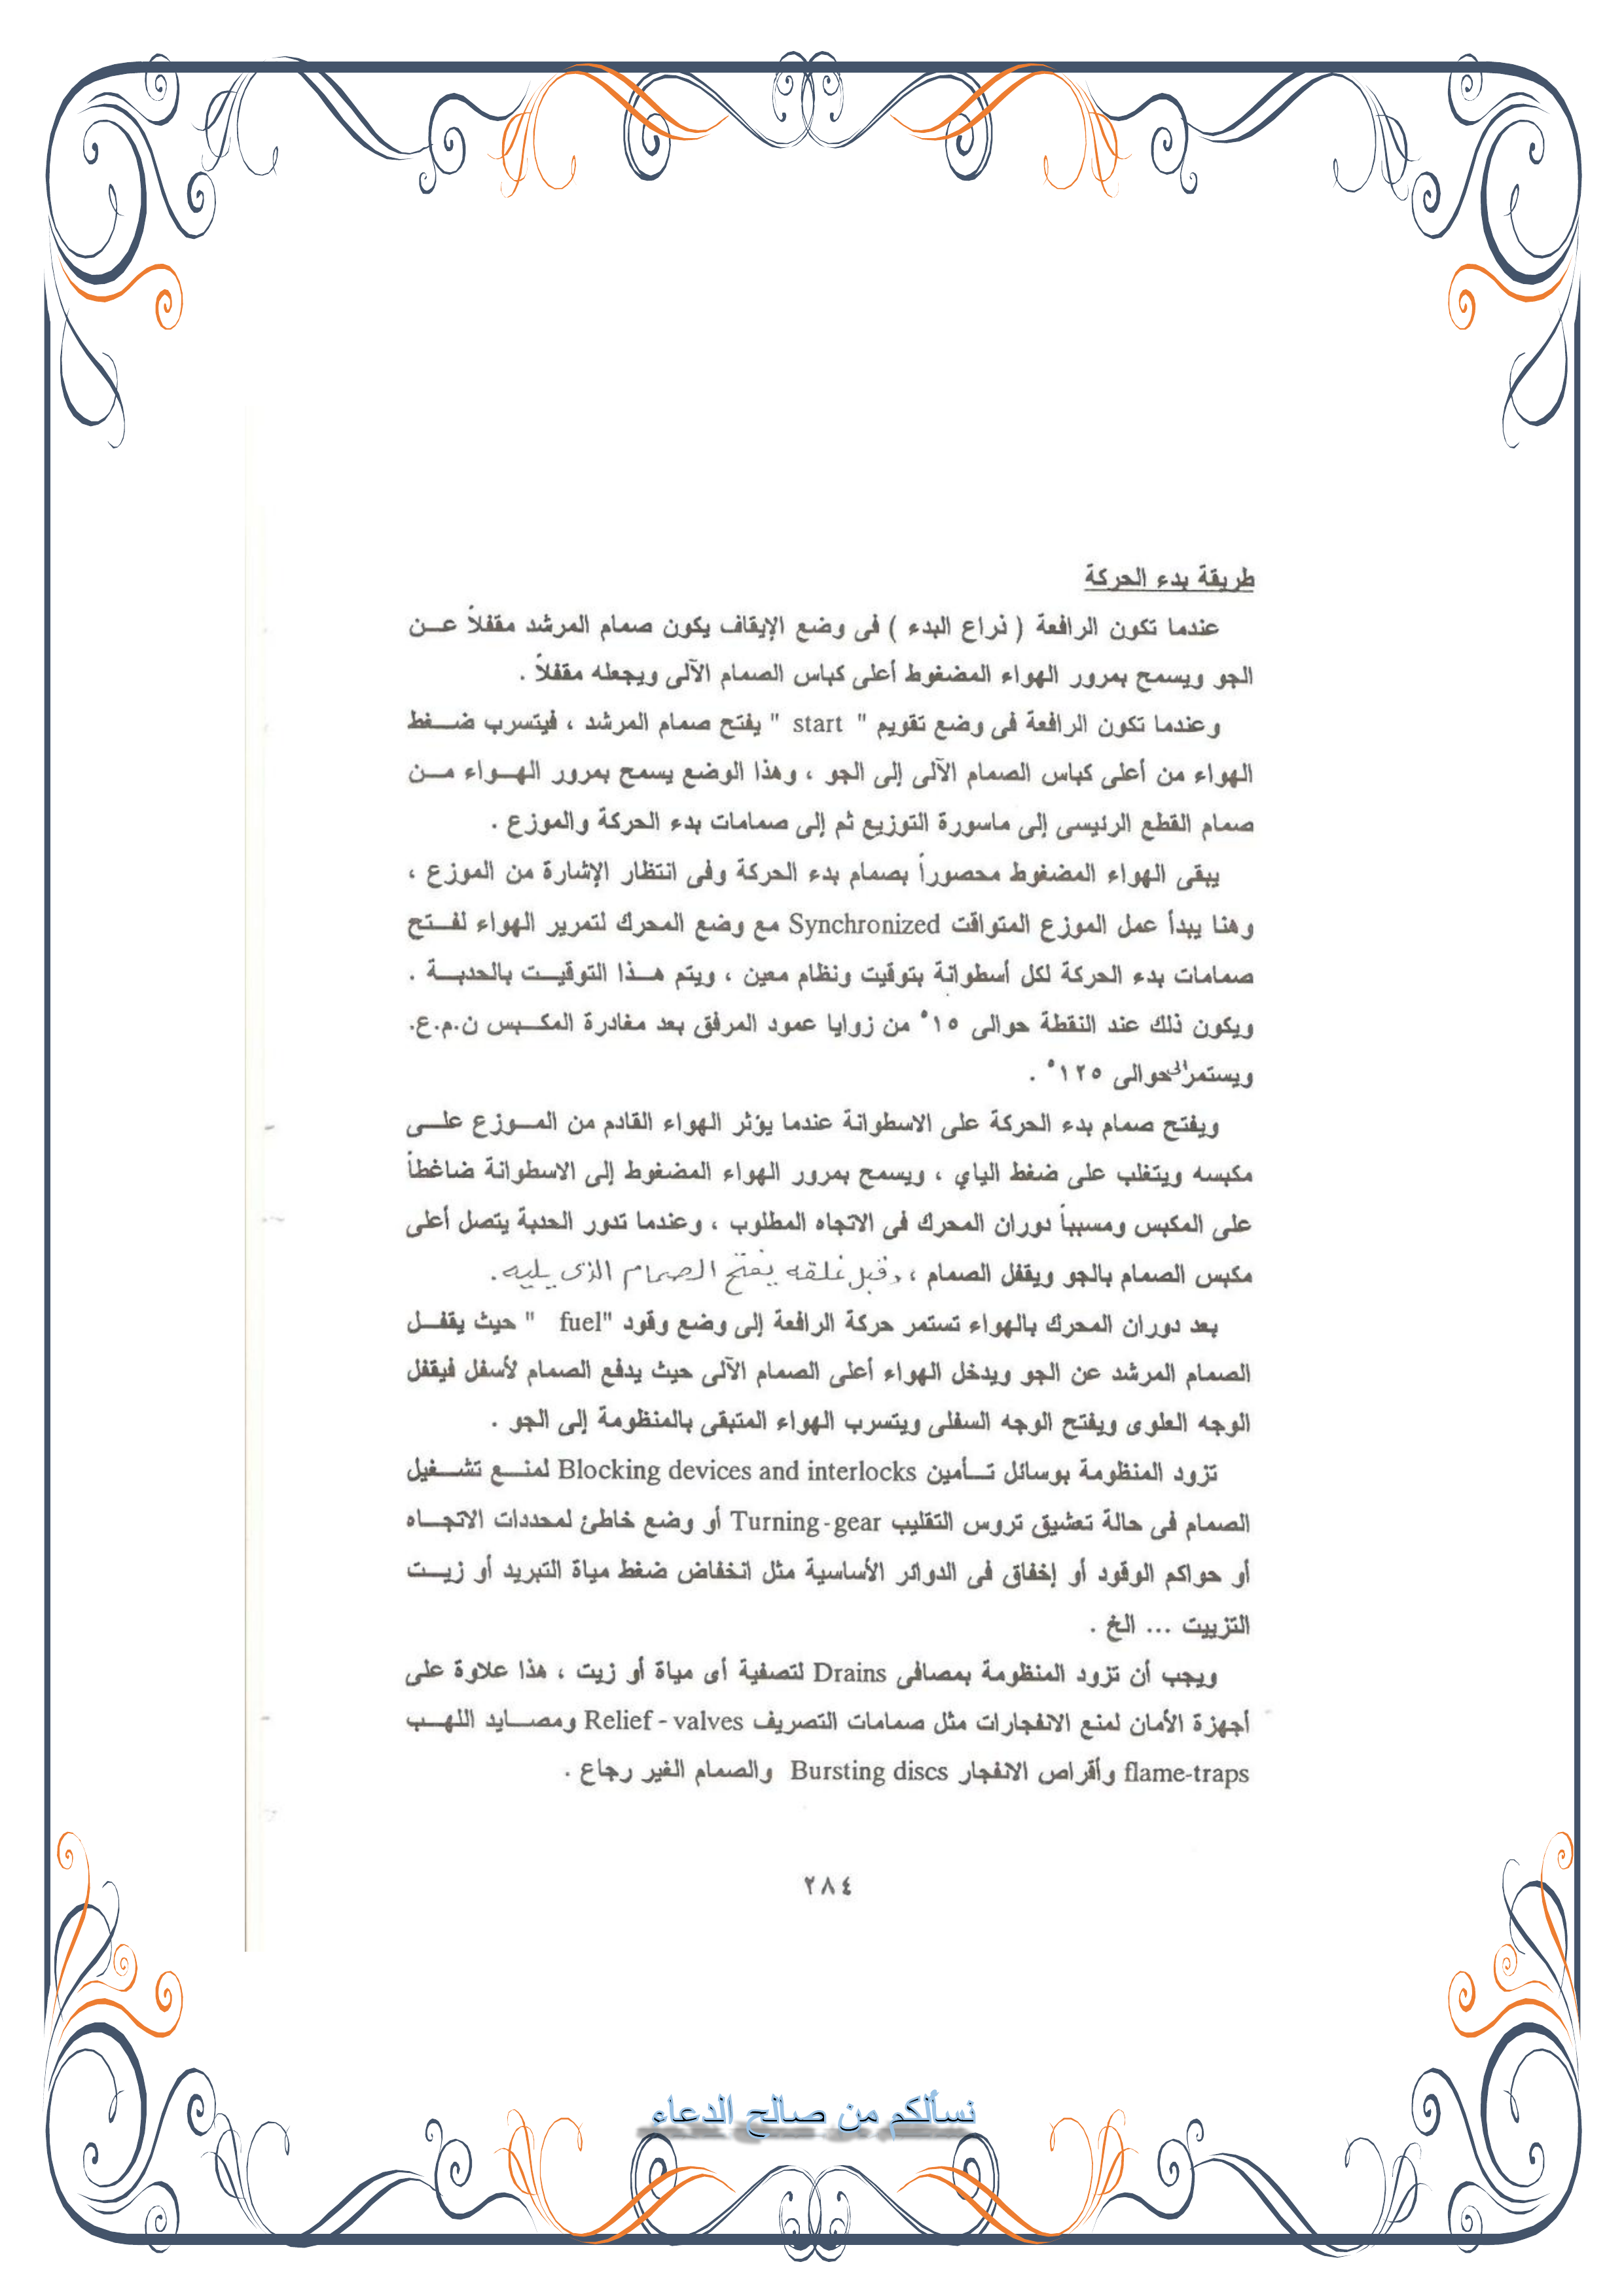 طريقة بدء الحركة
عندما تكون الرافعة ( ذراع البدء ) فى وضع الإيقاف يكون صمام المرشد مقفلاً عن
الجو ويسمح بمرور الهواء المضغوط أعلى كباس الصمام الآلى ويجعله مقفلاً .
وعندما تكون الرافعة فى وضع تقويم " start " يفتح صمام المرشد ، فيتسرب ضغط
الهواء من أعلى كباس الصمام الآلى إلى الجو ، وهذا الوضع يسمح بمرور الهواء من
صمام القطع الرئيسى إلى ماسورة التوزيع ثم إلى صمامات بدء الحركة والموزع .
يبقى الهواء المضغوط محصوراً بصمام بدء الحركة وفى انتظار الإشارة من الموزع ،
وهنا يبدأ عمل الموزع المتواقت Synchronized مع وضع المحرك لتمرير الهواء لفتح
صمامات بدء الحركة لكل أسطوانة بتوقيت ونظام معين ، ويتم هذا التوقيت بالحدبة .
ويكون ذلك عند النقطة حوالى ١٥° من زوايا عمود المرفق بعد مغادرة المكبس ن.م.ع.
ويستمر الى حوالى ١٢٥° .
ويفتح صمام بدء الحركة على الاسطوانة عندما يؤثر الهواء القادم من الموزع على
مكبسه ويتغلب على ضغط الياي ، ويسمح بمرور الهواء المضغوط إلى الاسطوانة ضاغطاً
على المكبس ومسبباً دوران المحرك فى الاتجاه المطلوب ، وعندما تدور الحدبة يتصل أعلى
مكبس الصمام بالجو ويقفل الصمام ، وقبل غلقه يفتح الصمام الذى يليه .
بعد دوران المحرك بالهواء تستمر حركة الرافعة إلى وضع وقود "fuel " حيث يقفل
الصمام المرشد عن الجو ويدخل الهواء أعلى الصمام الآلى حيث يدفع الصمام لأسفل فيقفل
الوجه العلوى ويفتح الوجه السفلى ويتسرب الهواء المتبقى بالمنظومة إلى الجو .
تزود المنظومة بوسائل تأمين Blocking devices and interlocks لمنع تشغيل
الصمام فى حالة تعشيق تروس التقليب Turning-gear أو وضع خاطئ لمحددات الاتجاه
أو حواكم الوقود أو إخفاق فى الدوائر الأساسية مثل انخفاض ضغط مياة التبريد أو زيت
التزييت ... الخ .
ويجب أن تزود المنظومة بمصافى Drains لتصفية أى مياة أو زيت ، هذا علاوة على
أجهزة الأمان لمنع الانفجارات مثل صمامات التصريف Relief - valves ومصايد اللهب
flame-traps وأقراص الانفجار Bursting discs والصمام الغير رجاع .
٢٨٤
نسألكم من صالح الدعاء